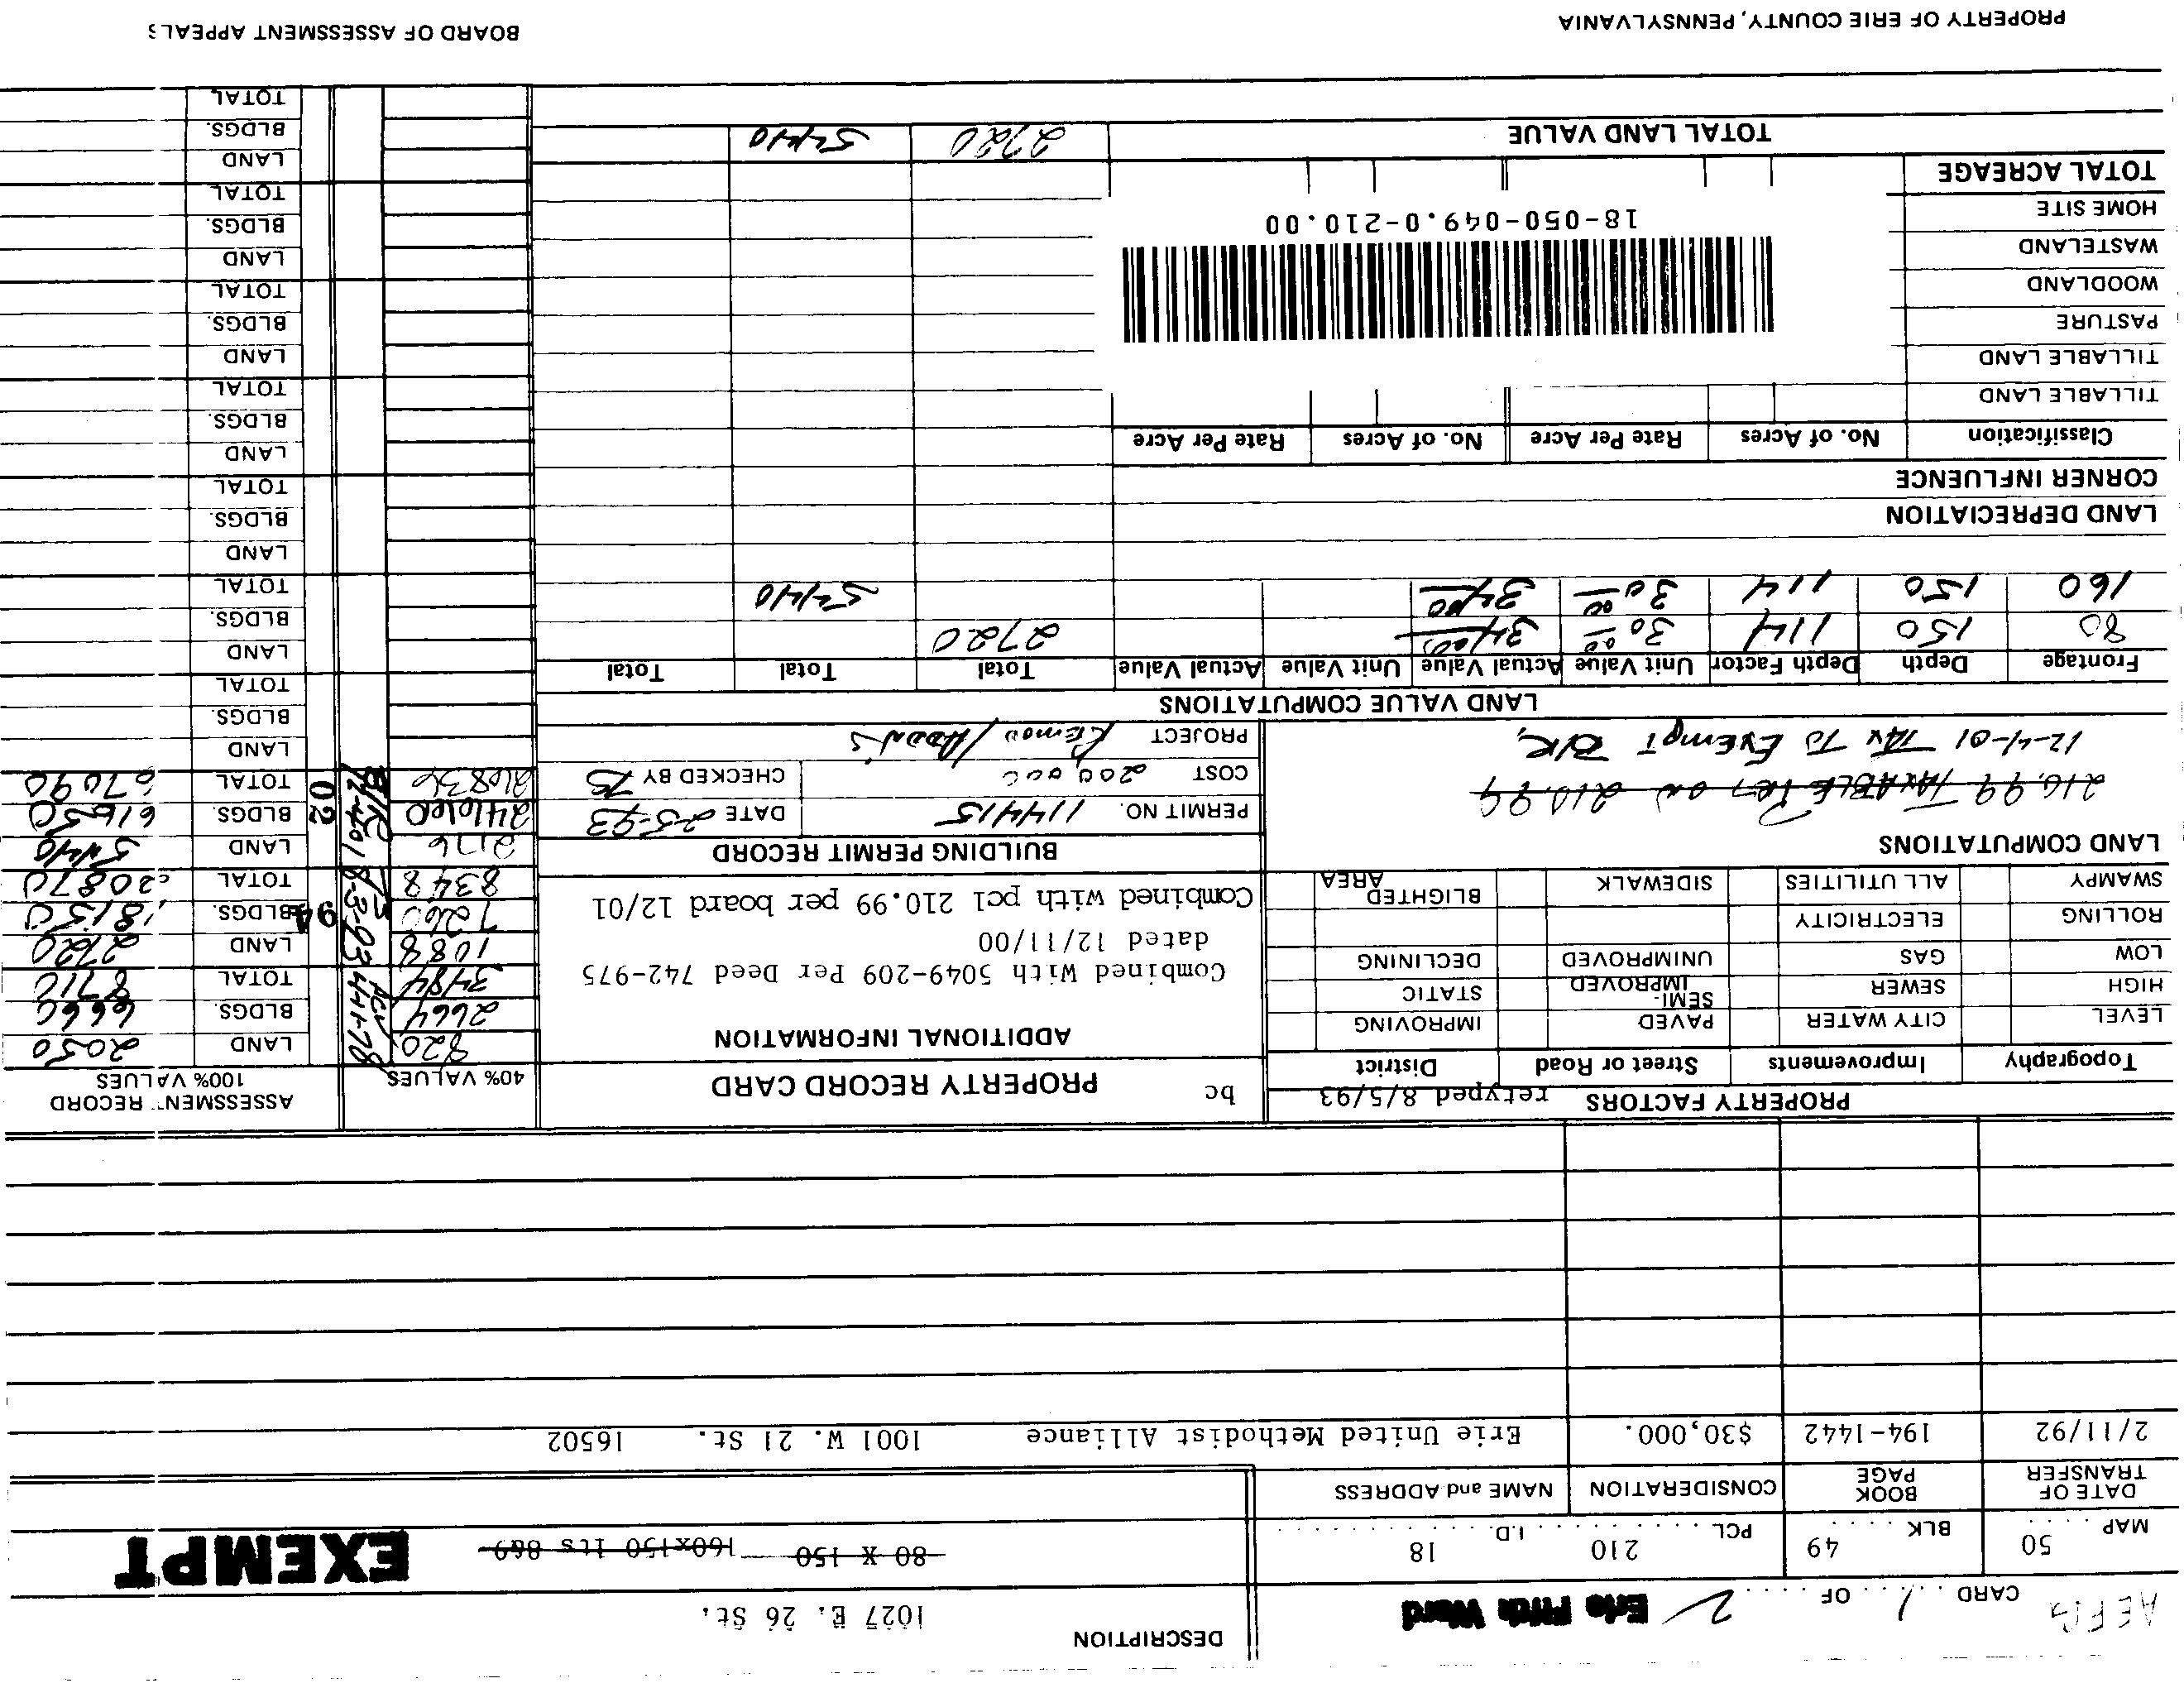 CARD 1 OF 2 Erie Fifth Ward
DESCRIPTION
1027 E. 26 St.
MAP 50 BLK 49 PCL 210 I.D. 18
80 X 150 160x150 lts 8&9
EXEMPT
DATE OF TRANSFER BOOK PAGE CONSIDERATION NAME and ADDRESS
2/11/92 194-1442 $30,000. Erie United Methodist Alliance 1001 W. 21 St. 16502
PROPERTY FACTORS retyped 8/5/93
Topography Improvements Street or Road District
LEVEL CITY WATER PAVED IMPROVING
HIGH SEWER SEMI-IMPROVED STATIC
LOW GAS UNIMPROVED DECLINING
ROLLING ELECTRICITY
SWAMPY ALL UTILITIES SIDEWALK BLIGHTED AREA
LAND COMPUTATIONS
210.99 TAXABLE on 210.99
12-4-01 TAX TO EXEMPT BK
bc PROPERTY RECORD CARD
ADDITIONAL INFORMATION
Combined With 5049-209 Per Deed 742-975
dated 12/11/00
Combined with pcl 210.99 per board 12/01
BUILDING PERMIT RECORD
PERMIT NO. 114415 DATE 2-5-93
COST 200,000 CHECKED BY
PROJECT Remod/Addn's
40% VALUES ASSESSMENT RECORD
100% VALUES
820 4-11-78 LAND 2050
2664 BLDGS. 6660
3484 TOTAL 8710
1088 8-3-93 94 LAND 2720
7260 BLDGS. 18150
8348 TOTAL 20870
2176 12-4-01 BK 02 LAND 5440
24660 BLDGS. 61650
26836 TOTAL 67090
LAND
BLDGS.
TOTAL
LAND
BLDGS.
TOTAL
LAND
BLDGS.
TOTAL
LAND
BLDGS.
TOTAL
LAND
BLDGS.
TOTAL
LAND
BLDGS.
TOTAL
LAND
BLDGS.
TOTAL
LAND VALUE COMPUTATIONS
Frontage Depth Depth Factor Unit Value Actual Value Unit Value Actual Value Total Total Total
80 150 114 30 00 34 00 2720
160 150 114 30 00 34 00 5440
LAND DEPRECIATION
CORNER INFLUENCE
Classification No. of Acres Rate Per Acre No. of Acres Rate Per Acre
TILLABLE LAND
TILLABLE LAND
PASTURE
WOODLAND
WASTELAND
HOME SITE
18-050-049.0-210.00
TOTAL ACREAGE
TOTAL LAND VALUE 2720 5440
PROPERTY OF ERIE COUNTY, PENNSYLVANIA
BOARD OF ASSESSMENT APPEALS